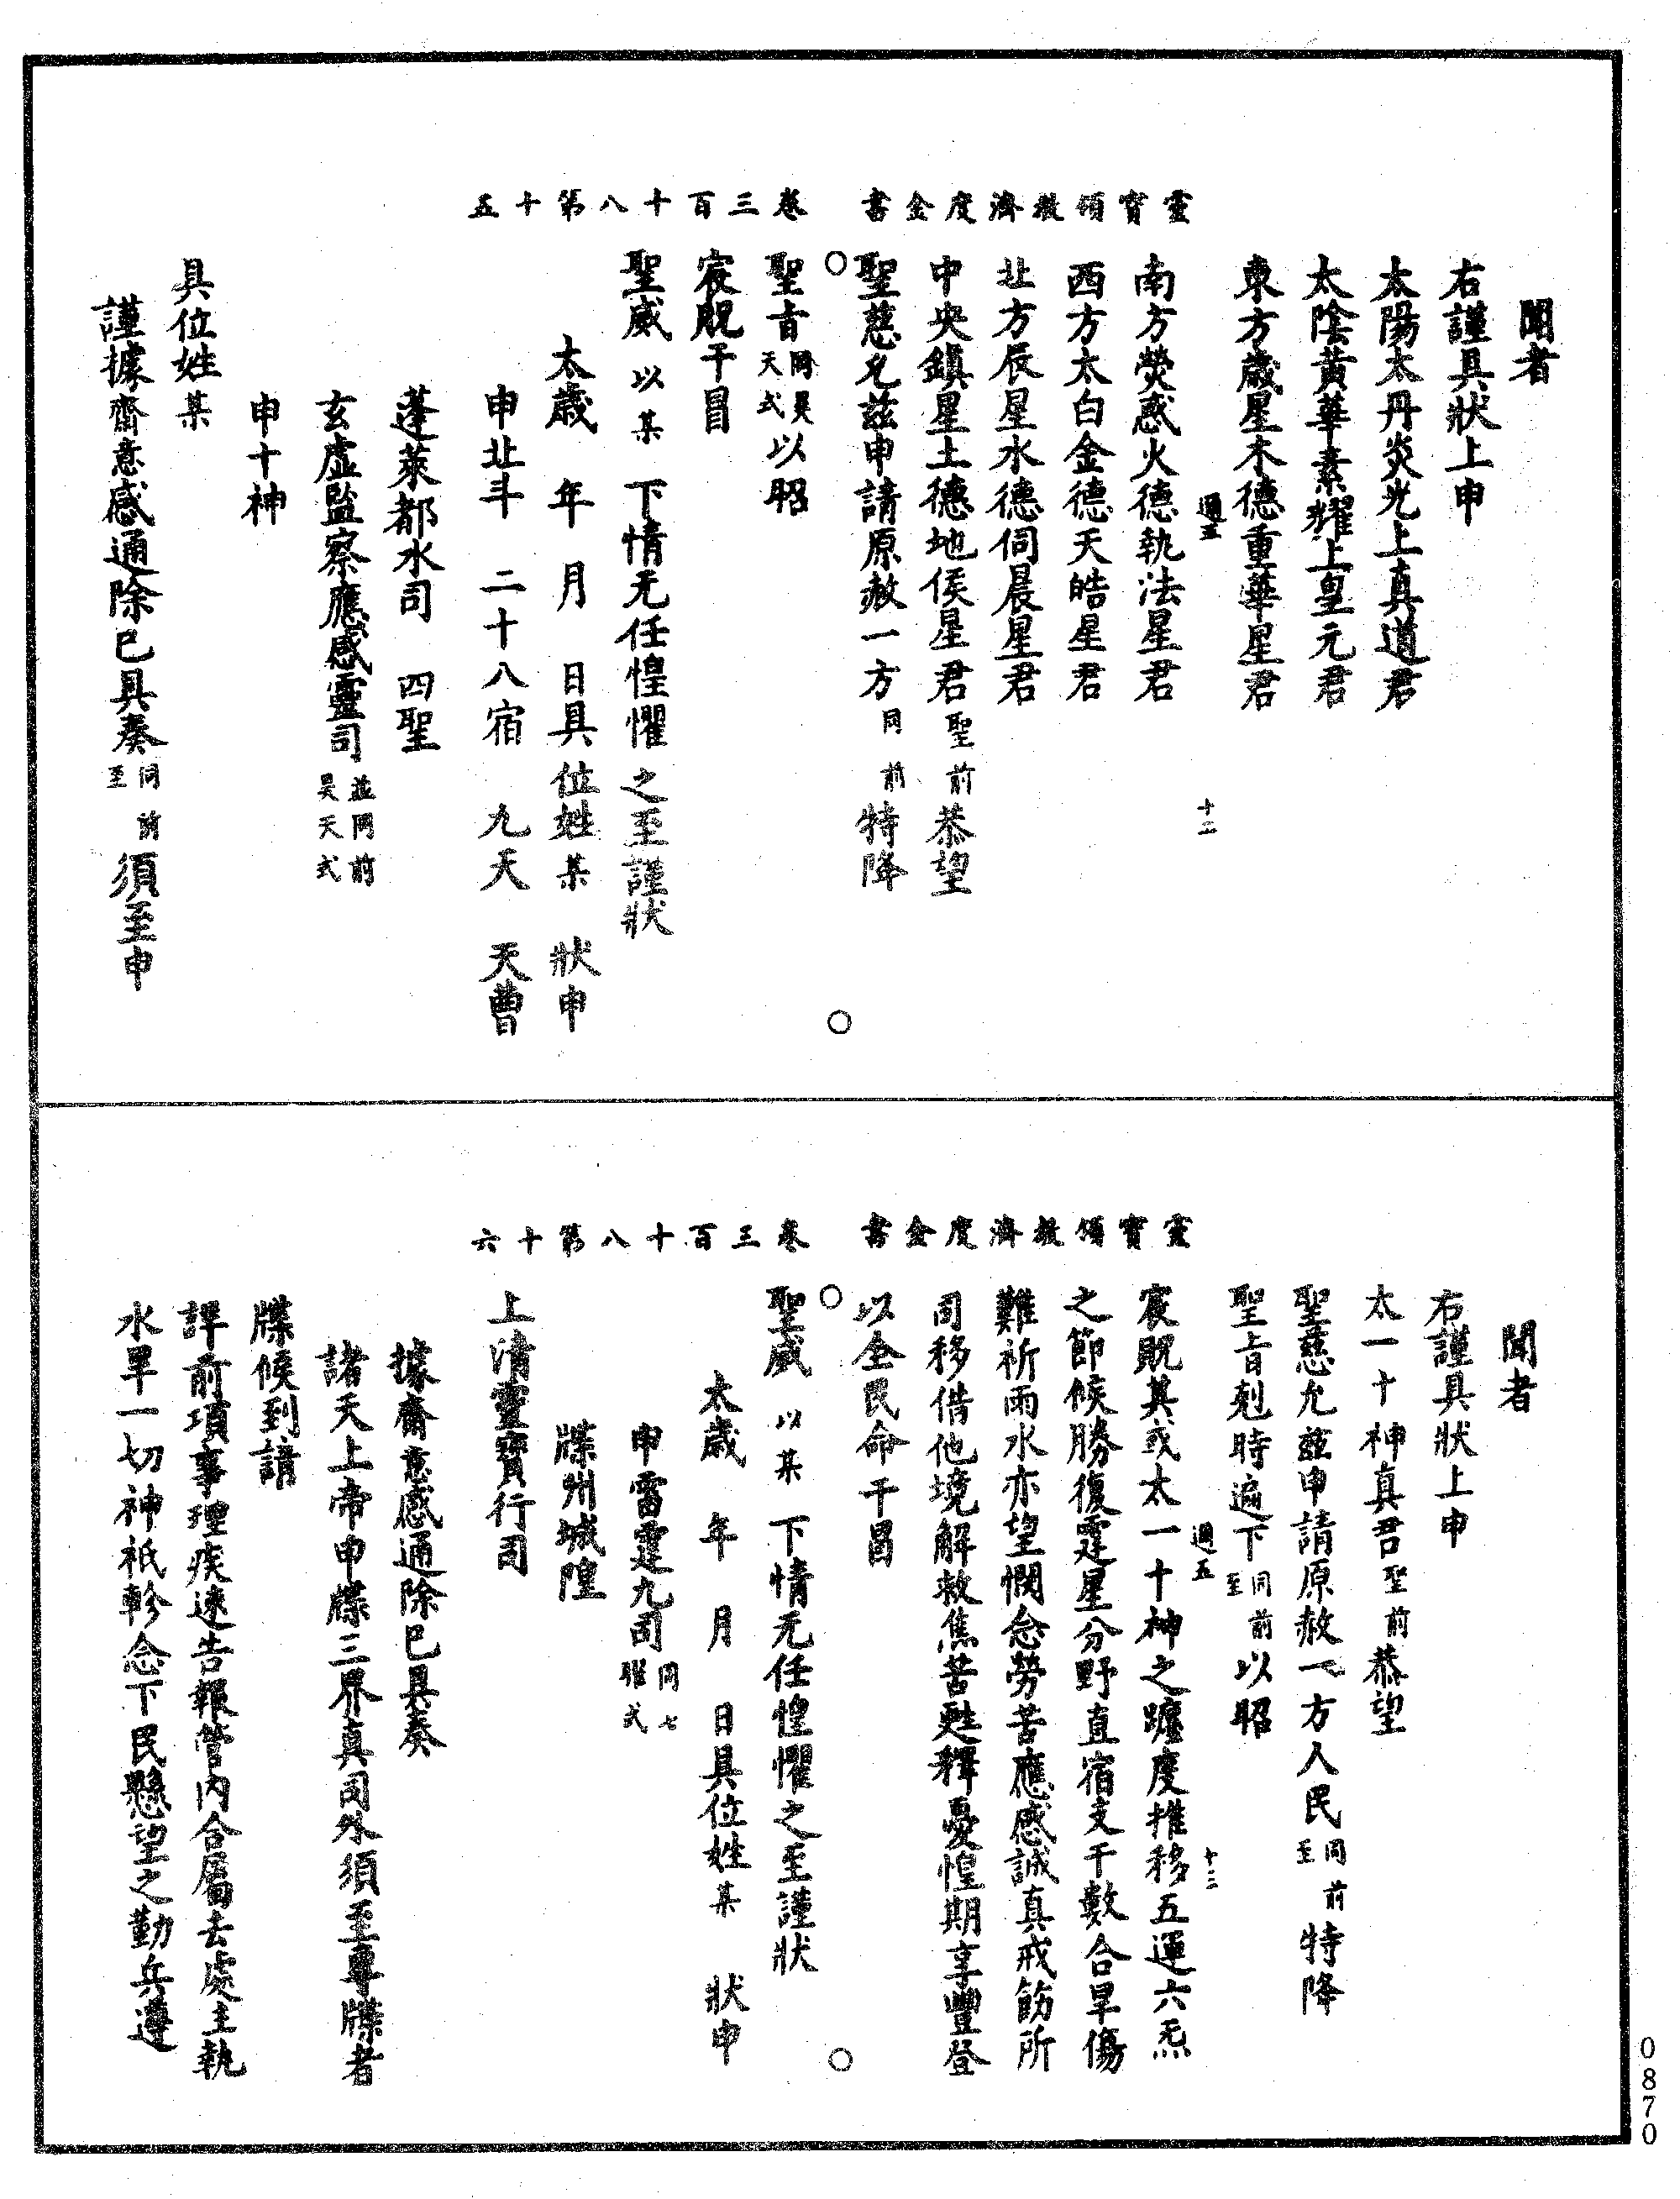 靈寶領教濟度金書 卷三百十八第十五
聞者
右謹具狀上申
太陽太丹炎光上真道君
太陰黃華素耀上皇元君
東方歲星木德重華星君
南方熒惑火德執法星君
西方太白金德天皓星君
北方辰星水德伺晨星君
中央鎮星土德地侯星君聖前恭望
聖慈允茲申請原赦一方同前特降
聖旨同昊天式以昭
宸貺干冒
聖威以某下情无任惶懼之至謹狀
太歲 年 月 日具位姓某 狀申
申北斗 二十八宿 九天 天曹
蓬萊都水司 四聖
玄虛監察應感靈司並同前昊天式
申十神
具位姓某
謹據齋意感通除已具奏同前至須至申
十二
靈寶領教濟度金書 卷三百十八第十六
聞者
右謹具狀上申
太一十神真君聖前恭望
聖慈允茲申請原赦一方人民同前至特降
聖旨剋時遍下同前至以昭
宸貺其或太一十神之躔度推移五運六炁
之節候勝復霆星分野直宿支干數合旱傷
難祈雨水亦望憫念勞苦應感誠真戒飭所
司移借他境解救焦苦甦釋憂惶期享豐登
以全民命干冒
聖威以某下情无任惶懼之至謹狀
太歲 年 月 日具位姓某 狀申
申雷霆九司同七曜式
牒州城隍
上清靈寶行司
據齋意感通除已具奏
諸天上帝申牒三界真司外須至專牒者
牒候到請
詳前項事理疾速告報管內合屬去處主執
水旱一切神祇軫念下民懸望之勤兵遵
十三
0870